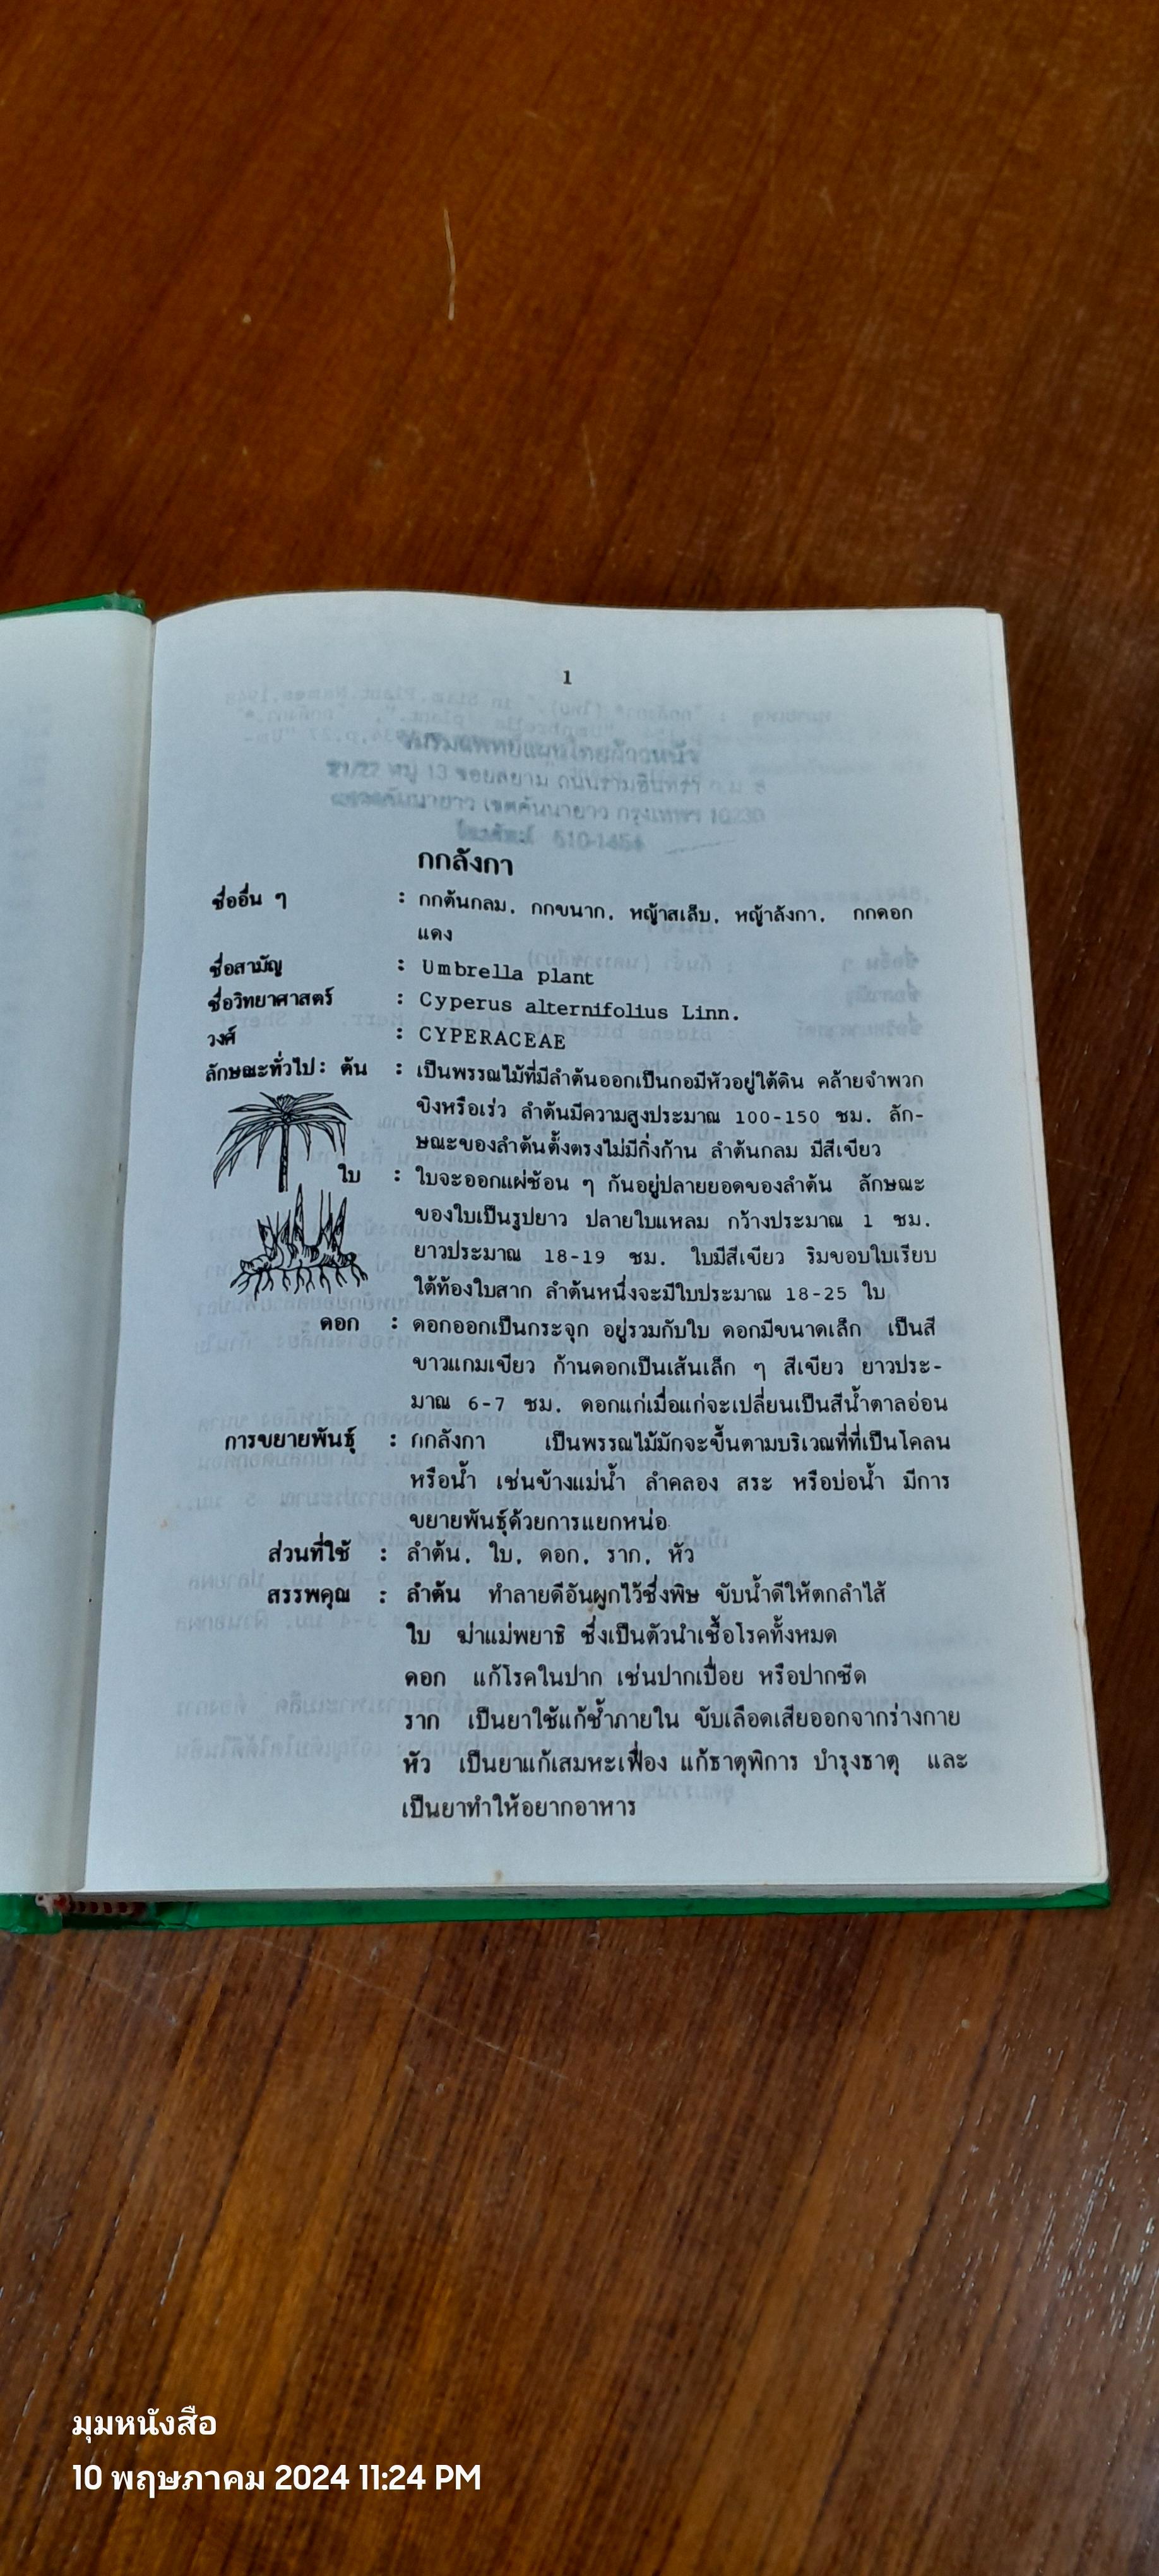 1
21/22 หมู่ 13 ซอยสยาม ถนนรามอินทรา
เขตคันนายาว กรุงเทพฯ 10230
510-1454
กกลังกา
ชื่ออื่น ๆ : กกต้นกลม, กกขนาก, หญ้าสเล็บ, หญ้าลังกา, กกดอก
แดง
ชื่อสามัญ : Umbrella plant
ชื่อวิทยาศาสตร์ : Cyperus alternifolius Linn.
วงศ์ : CYPERACEAE
ลักษณะทั่วไป: ต้น : เป็นพรรณไม้ที่มีลำต้นออกเป็นกอมีหัวอยู่ใต้ดิน คล้ายจำพวก
ขิงหรือเร่ว ลำต้นมีความสูงประมาณ 100-150 ซม. ลัก-
ษณะของลำต้นตั้งตรงไม่มีกิ่งก้าน ลำต้นกลม มีสีเขียว
ใบ : ใบจะออกแผ่ซ้อน ๆ กันอยู่ปลายยอดของลำต้น ลักษณะ
ของใบเป็นรูปยาว ปลายใบแหลม กว้างประมาณ 1 ซม.
ยาวประมาณ 18-19 ซม. ใบมีสีเขียว ริมขอบใบเรียบ
ใต้ท้องใบสาก ลำต้นหนึ่งจะมีใบประมาณ 18-25 ใบ
ดอก : ดอกออกเป็นกระจุก อยู่รวมกับใบ ดอกมีขนาดเล็ก เป็นสี
ขาวแกมเขียว ก้านดอกเป็นเส้นเล็ก ๆ สีเขียว ยาวประ-
มาณ 6-7 ซม. ดอกแก่เมื่อแก่จะเปลี่ยนเป็นสีน้ำตาลอ่อน
การขยายพันธุ์ : กกลังกา เป็นพรรณไม้มักจะขึ้นตามบริเวณที่ที่เป็นโคลน
หรือน้ำ เช่นข้างแม่น้ำ ลำคลอง สระ หรือบ่อน้ำ มีการ
ขยายพันธุ์ด้วยการแยกหน่อ
ส่วนที่ใช้ : ลำต้น, ใบ, ดอก, ราก, หัว
สรรพคุณ : ลำต้น ทำลายดีอันผูกไว้ซึ่งพิษ ขับน้ำดีให้ตกลำไส้
ใบ ฆ่าแม่พยาธิ ซึ่งเป็นตัวนำเชื้อโรคทั้งหมด
ดอก แก้โรคในปาก เช่นปากเปื่อย หรือปากซีด
ราก เป็นยาใช้แก้ช้ำภายใน ขับเลือดเสียออกจากร่างกาย
หัว เป็นยาแก้เสมหะเฟื่อง แก้ธาตุพิการ บำรุงธาตุ และ
เป็นยาทำให้อยากอาหาร
มุมหนังสือ
10 พฤษภาคม 2024 11:24 PM